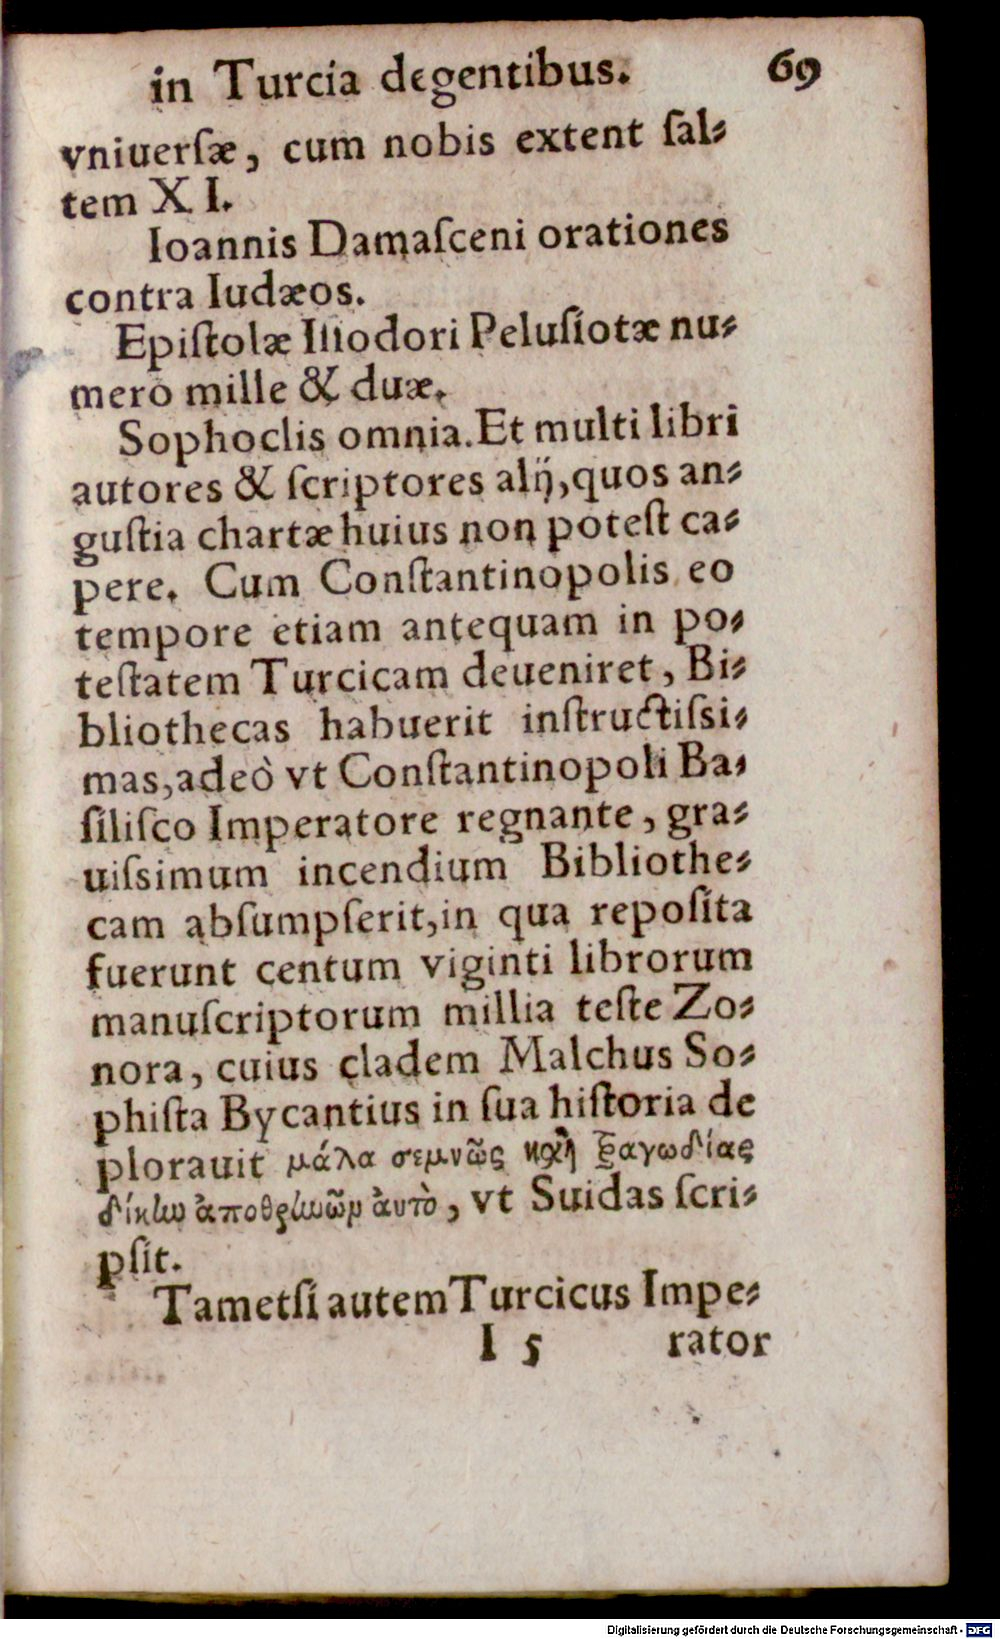 in Turcia degentibus. 69
vniuerſæ, cum nobis extent ſal-
tem XI.
Ioannis Damaſceni orationes
contra Iudæos.
Epiſtolæ Iſiodori Peluſiotæ nu-
mero mille & duæ.
Sophoclis omnia. Et multi libri
autores & ſcriptores alij, quos an-
guſtia chartæ huius non poteſt ca-
pere. Cum Conſtantinopolis eo
tempore etiam antequam in po-
teſtatem Turcicam deueniret, Bi-
bliothecas habuerit inſtructiſsi-
mas, adeò vt Conſtantinopoli Ba-
ſiliſco Imperatore regnante, gra-
uiſsimum incendium Bibliothe-
cam abſumpſerit, in qua repoſita
fuerunt centum viginti librorum
manuſcriptorum millia teſte Zo-
nora, cuius cladem Malchus So-
phiſta Bycantius in ſua hiſtoria de
plorauit μάλα σεμνῶς καὶ τραγωδίας
δίκην ἀποθρηνῶν ἀυτὸ, vt Suidas ſcri-
pſit.
Tametſi autem Turcicus Impe-
I 5 rator
Digitalisierung gefördert durch die Deutsche Forschungsgemeinschaft - DFG